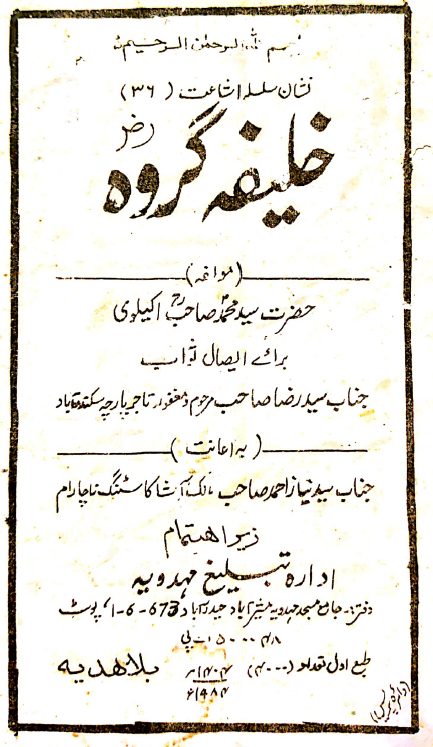 بسم اللہ الرحمٰن الرحیم
نشان سلسلہ اشاعت (۳۶)
خلیفہ گروہ رضؓ
(مولفہ)
حضرت سید محمد صاحبؒ اکیلوی
برائے ایصال ثواب
جناب سید رضا صاحب مرحوم و مغفور تاجر پارچہ سکندرآباد
(بہ اعانت)
جناب سید نیاز احمد صاحب مالک آشا کاسٹنگ ناچارام
زیر اہتمام
ادارہ تبلیغ مہدویہ
دفتر:۔ جامع مسجد مہدویہ مشیرآباد حیدرآباد 673-6-1، پوسٹ
۵۰۰۰۴۸ اے پی
طبع اول تعداد (۴۰۰۰) ۱۴۰۴ھ بلا ھدیہ
۱۹۸۴ء